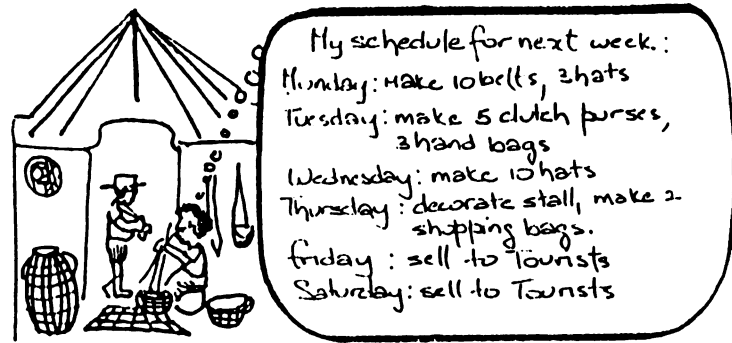 My schedule for next week.:
Monday: Make 10 belts, 3 hats
Tuesday: make 5 clutch purses,
3 hand bags
Wednesday: make 10 hats
Thursday: decorate stall, make 2
shopping bags.
friday : sell to Tourists
Saturday: sell to Tourists